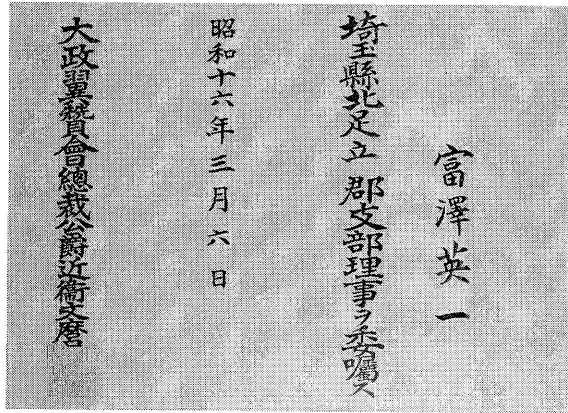 富澤英一
埼玉縣北足立郡支部理事ヲ委囑ス
昭和十六年三月六日
大政翼贊會總裁公爵近衞文麿